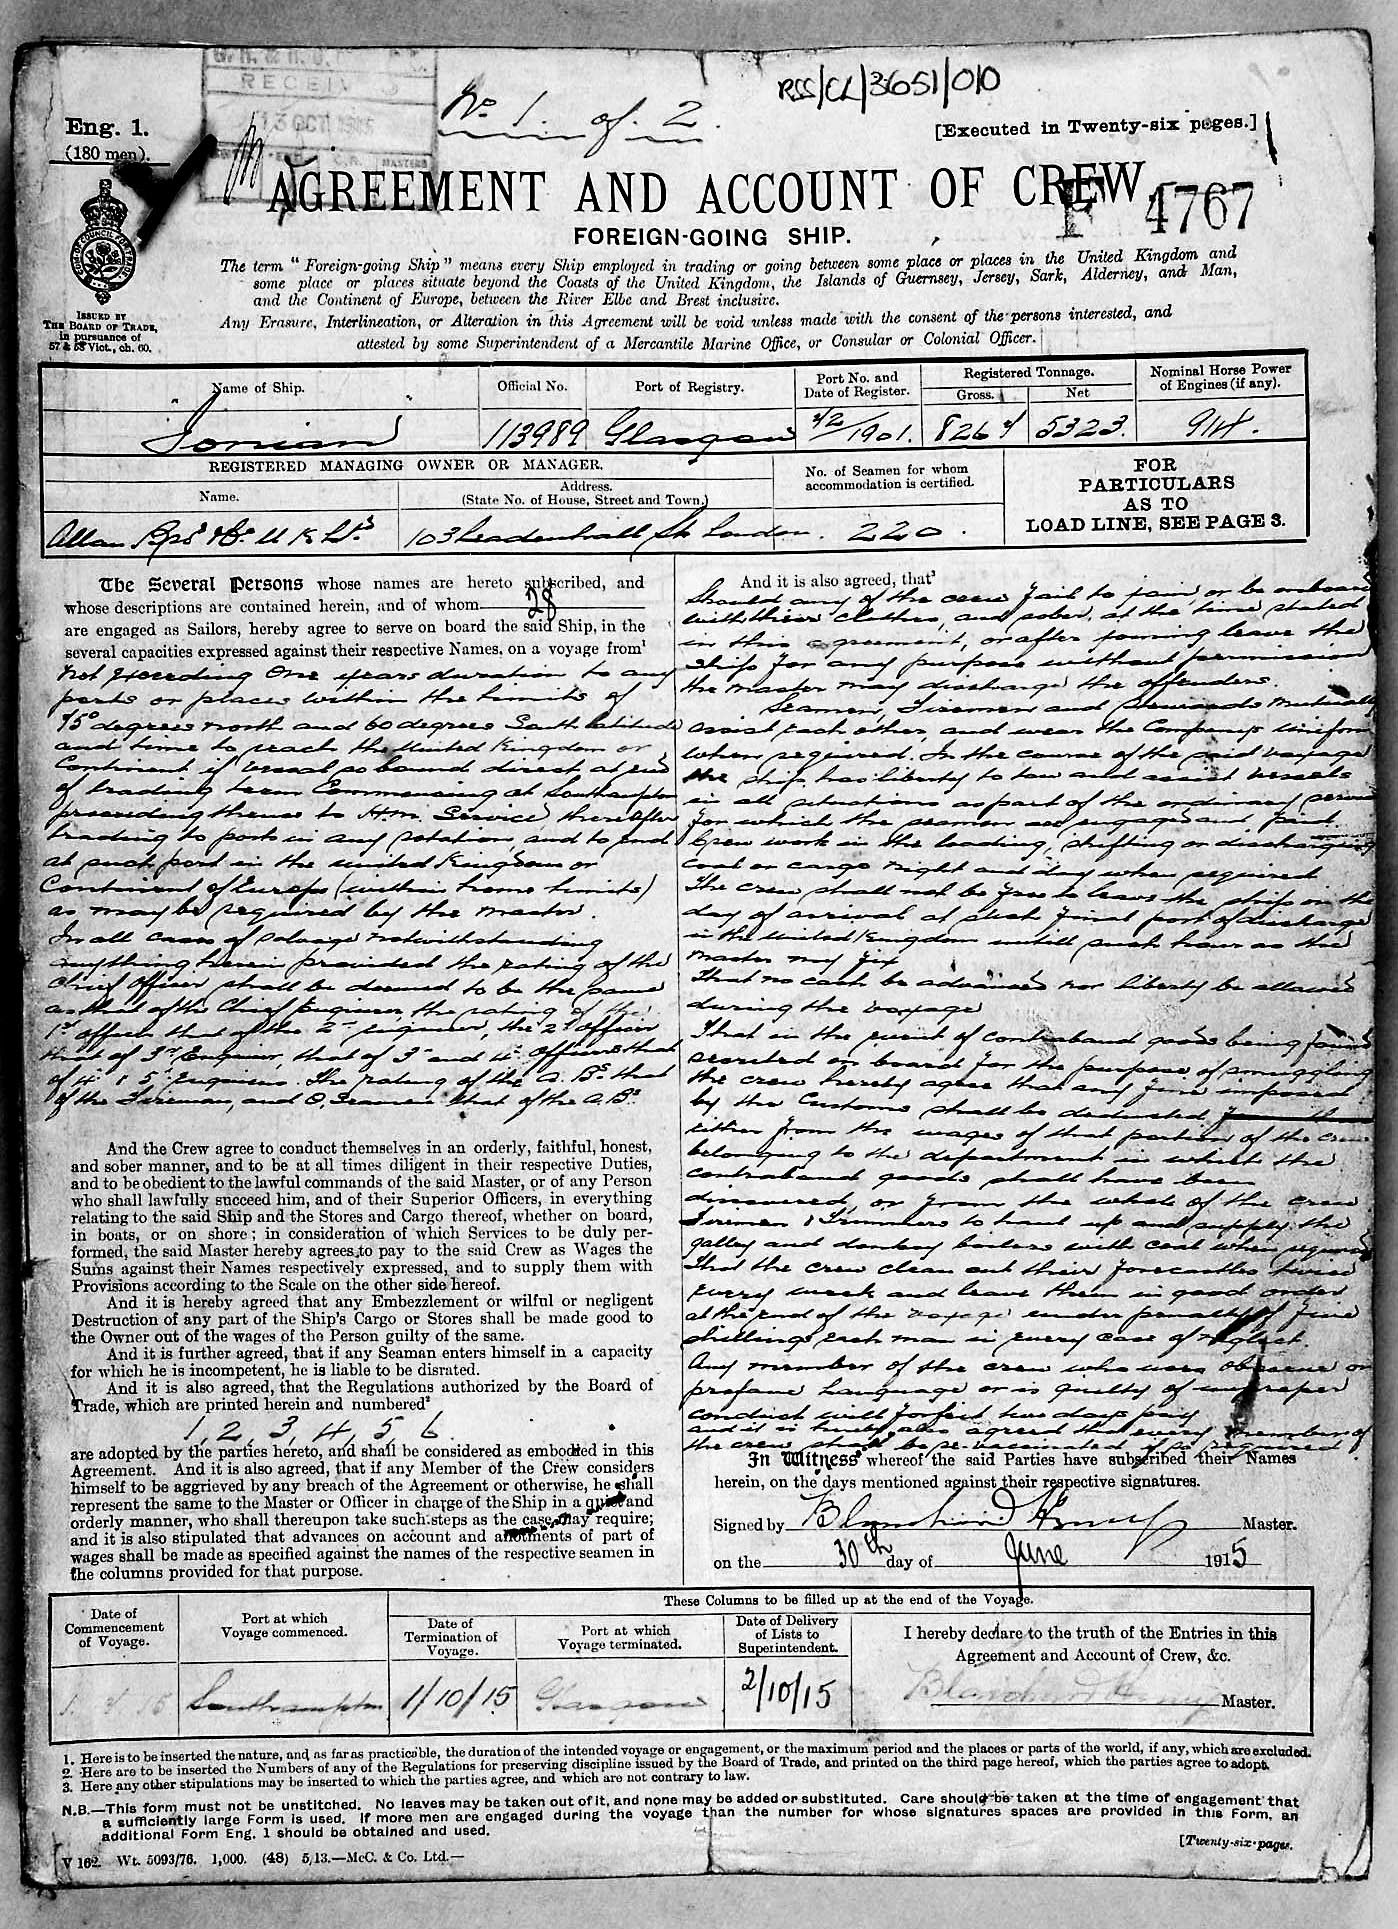 RSS/CL/3651/010
No. 1. of. 2.
RECEIV
13 OCT 1915
Eng. 1.
(180 men).
[Executed in Twenty-six pages.]
AGREEMENT AND ACCOUNT OF CREW
F 4767
FOREIGN-GOING SHIP.
The term "Foreign-going Ship" means every Ship employed in trading or going between some place or places in the United Kingdom and
some place or places situate beyond the Coasts of the United Kingdom, the Islands of Guernsey, Jersey, Sark, Alderney, and Man,
and the Continent of Europe, between the River Elbe and Brest inclusive.
Any Erasure, Interlineation, or Alteration in this Agreement will be void unless made with the consent of the persons interested, and
attested by some Superintendent of a Mercantile Marine Office, or Consular or Colonial Officer.
ISSUED BY
THE BOARD OF TRADE,
in pursuance of
57 & 58 Vict., ch. 60.
Name of Ship. Official No. Port of Registry. Port No. and Date of Register. Registered Tonnage. Gross. Net Nominal Horse Power of Engines (if any).
"Ionian" 113989 Glasgow 42/1901. 8264 5323. 914.
REGISTERED MANAGING OWNER OR MANAGER.
Name. Address. (State No. of House, Street and Town.) No. of Seamen for whom accommodation is certified.
FOR
PARTICULARS
AS TO
LOAD LINE, SEE PAGE 3.
Allan Bros & Co. U K Ltd 103 Leadenhall St London. 220.
The Several Persons whose names are hereto subscribed, and
whose descriptions are contained herein, and of whom 28
are engaged as Sailors, hereby agree to serve on board the said Ship, in the
several capacities expressed against their respective Names, on a voyage from¹
not exceeding One years duration to any
ports or places within the limits of
75 degrees north and 60 degrees South latitude
and time to reach the United Kingdom or
Continent if vessel so bound direct at end
of trading term Commencing at Southampton
proceeding thence to H.M. Service thereafter
trading to ports in any rotation, and to end
at such port in the United Kingdom or
Continent of Europe (within home limits)
as may be required by the master.
In all cases of salvage notwithstanding
anything herein provided the rating of the
Chief Officer shall be deemed to be the same
as that of the Chief Engineer, the rating of the
1st officer that of the 2nd Engineer, the 2d Officer
that of 3rd Engineer, that of 3rd and 4th Officers that
of 4th & 5th Engineers. The rating of the A. Bs that
of the Fireman, and O. Seamen that of the A.Bs
And the Crew agree to conduct themselves in an orderly, faithful, honest,
and sober manner, and to be at all times diligent in their respective Duties,
and to be obedient to the lawful commands of the said Master, or of any Person
who shall lawfully succeed him, and of their Superior Officers, in everything
relating to the said Ship and the Stores and Cargo thereof, whether on board,
in boats, or on shore; in consideration of which Services to be duly per-
formed, the said Master hereby agrees to pay to the said Crew as Wages the
Sums against their Names respectively expressed, and to supply them with
Provisions according to the Scale on the other side hereof.
And it is hereby agreed that any Embezzlement or wilful or negligent
Destruction of any part of the Ship's Cargo or Stores shall be made good to
the Owner out of the wages of the Person guilty of the same.
And it is further agreed, that if any Seaman enters himself in a capacity
for which he is incompetent, he is liable to be disrated.
And it is also agreed, that the Regulations authorized by the Board of
Trade, which are printed herein and numbered²
1, 2, 3, 4, 5, 6
are adopted by the parties hereto, and shall be considered as embodied in this
Agreement. And it is also agreed, that if any Member of the Crew considers
himself to be aggrieved by any breach of the Agreement or otherwise, he shall
represent the same to the Master or Officer in charge of the Ship in a quiet and
orderly manner, who shall thereupon take such steps as the case may require;
and it is also stipulated that advances on account and allotments of part of
wages shall be made as specified against the names of the respective seamen in
the columns provided for that purpose.
And it is also agreed, that³
Should any of the crew fail to join or be onboard
with their clothes, and sober, at the time stated
in this agreement, or after joining leave the
ship for any purpose without permission
the master may discharge the offenders.
Seamen, Firemen and Stewards mutually
assist each other, and wear the Companys uniform
when required. In the course of the said voyage
the ship has liberty to tow and assist vessels
in all situations as part of the ordinary service
for which the seamen are engaged and paid.
Crew work in the loading, shifting or discharging
coal or cargo night and day when required
The crew shall not be free to leave the ship on the
day of arrival at such final port of discharge
in the United Kingdom untill such hour as the
master may fix
That no cash be advanced nor liberty be allowed
during the voyage
That in the event of contraband goods being found
secreted on board for the purpose of smuggling
the crew hereby agree that any fine imposed
by the Customs shall be deducted
either from the wages of that portion of the crew
belonging to the department in which the
contraband goods shall have been
discovered, or from the whole of the crew
Firemen & Trimmers to haul up and supply the
galley and donkey boilers with coal when required
That the crew clean out their forecastles twice
every week and leave them in good order
at the end of the voyage under penalty of five
shillings each man in every case of neglect.
Any member of the crew who uses obscene or
profane language or is guilty of improper
conduct will forfeit two days pay
and it is further also agreed that every member of
the crew shall be re-vaccinated if so required
In Witness whereof the said Parties have subscribed their Names
herein, on the days mentioned against their respective signatures.
Signed by Blanchard Henry Master.
on the 30th day of June 1915
Date of Commencement of Voyage. Port at which Voyage commenced. These Columns to be filled up at the end of the Voyage.
Date of Termination of Voyage. Port at which Voyage terminated. Date of Delivery of Lists to Superintendent.
I hereby declare to the truth of the Entries in this
Agreement and Account of Crew, &c.
Southampton 1/10/15 Glasgow 2/10/15 Blanchard Henry Master.
1. Here is to be inserted the nature, and as far as practicable, the duration of the intended voyage or engagement, or the maximum period and the places or parts of the world, if any, which are excluded.
2. Here are to be inserted the Numbers of any of the Regulations for preserving discipline issued by the Board of Trade, and printed on the third page hereof, which the parties agree to adopt.
3. Here any other stipulations may be inserted to which the parties agree, and which are not contrary to law.
N.B.—This form must not be unstitched. No leaves may be taken out of it, and none may be added or substituted. Care should be taken at the time of engagement that
a sufficiently large Form is used. If more men are engaged during the voyage than the number for whose signatures spaces are provided in this Form, an
additional Form Eng. 1 should be obtained and used.
[Twenty-six pages.
V 162. Wt. 5093/76. 1,000. (48) 5/13.—McC. & Co. Ltd.—